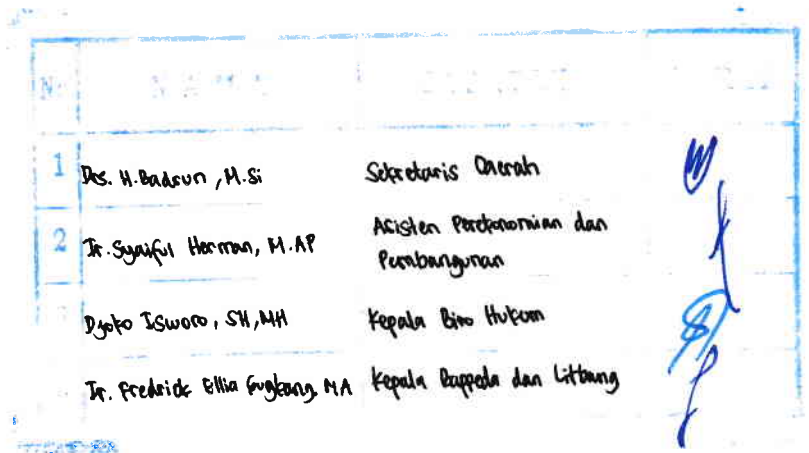 No NAMA
1 Drs. H. Badrun, M.Si Sekretaris Daerah
2 Ir. Syaiful Herman, M.AP Asisten Perekonomian dan
Pembangunan
Djoko Isworo, SH, MH Kepala Biro Hukum
Ir. Fredrick Ellia MA Kepala Bappeda dan Litbang